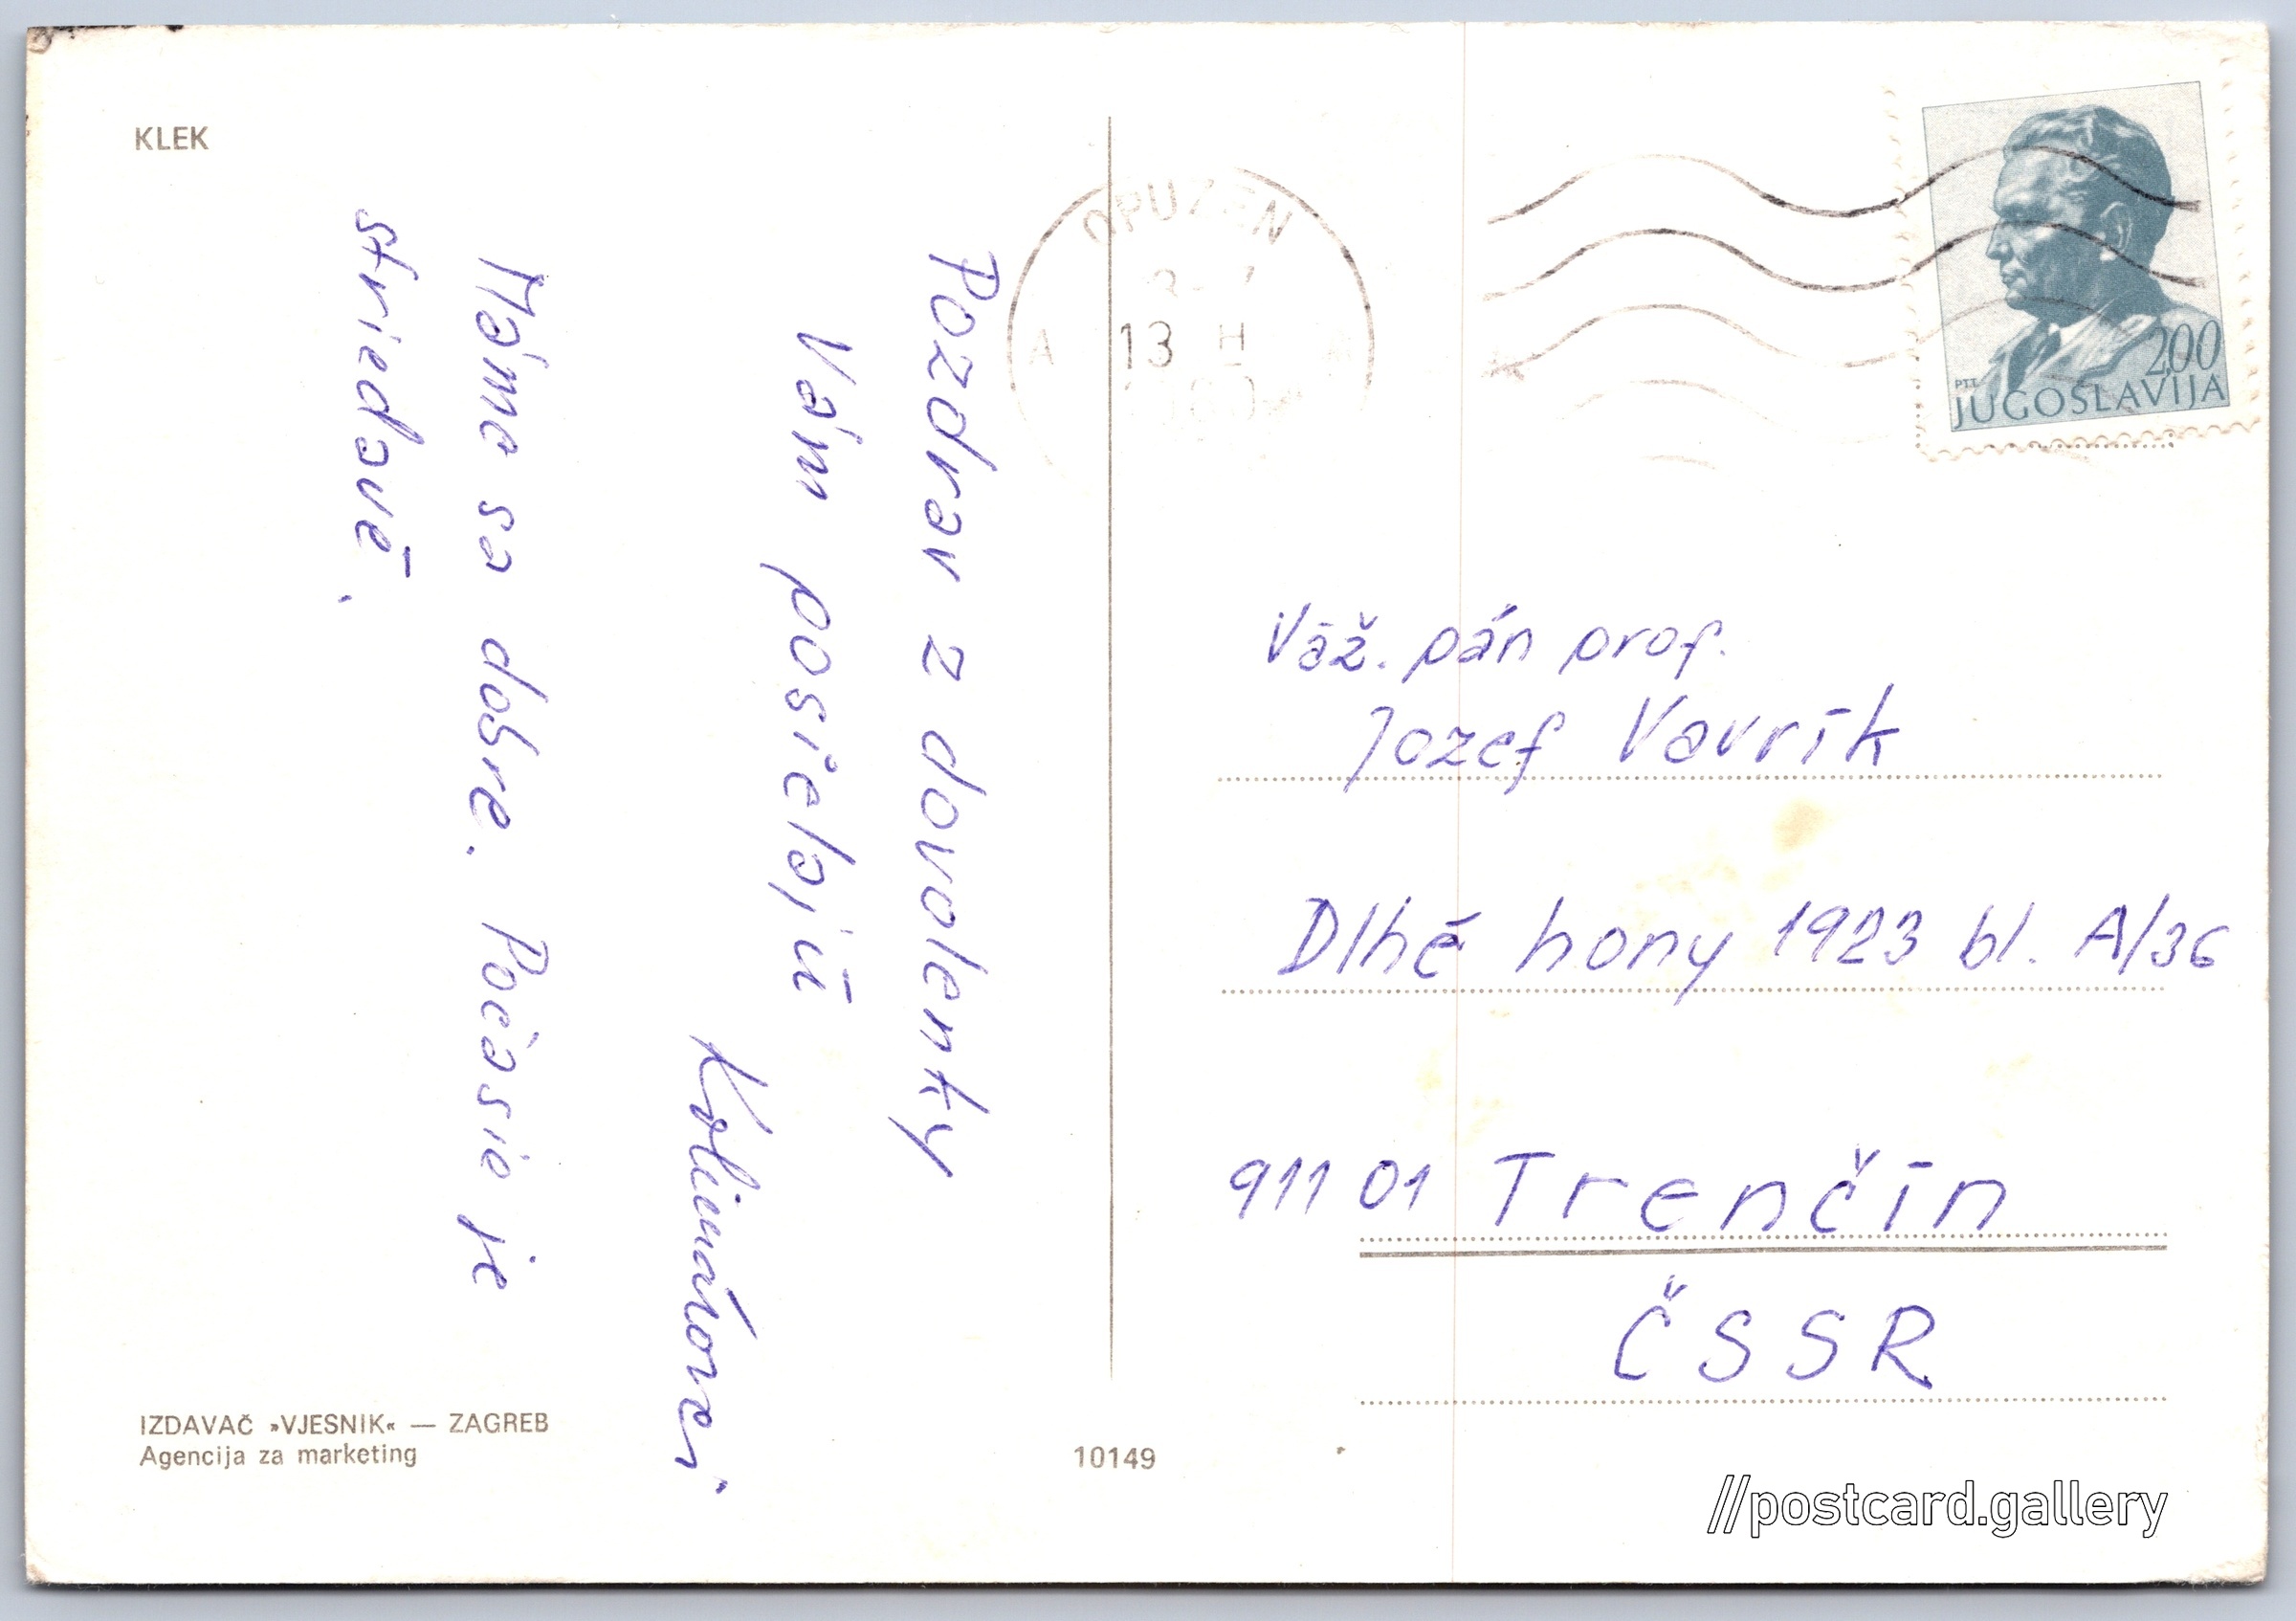 KLEK
Pozdrav z dovolenky
Vám posielajú
Kolimárovci
Máme sa dobre. Počasie je
striedavé.
OPUZEN
13 H
A
PTT
2.00
JUGOSLAVIJA
Váž. pán prof.
Jozef Vavrík
Dlhé hony 1923 bl. A/36
911 01 Trenčín
ČSSR
IZDAVAČ »VJESNIK« — ZAGREB
Agencija za marketing
10149
//postcard.gallery